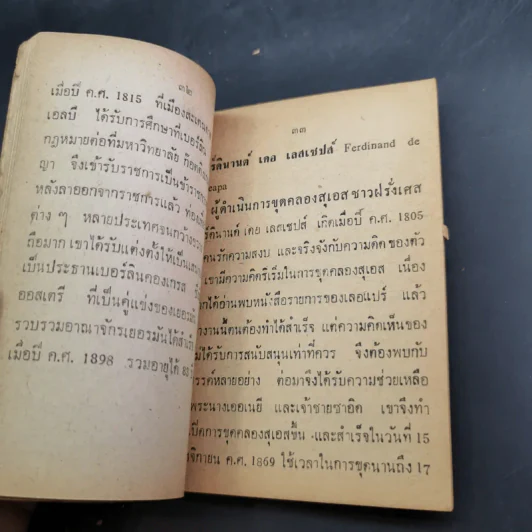 ๓๒
เมื่อปี ค.ศ. 1815 ที่เมืองสะเตนดาล
เอลบี ได้รับการศึกษาที่เบอร์ลิน
กฎหมายต่อที่มหาวิทยาลัย ก๊อตติง
ญา จึงเข้ารับราชการเป็นข้าราช
หลังลาออกจากราชการแล้ว ท่อง
ต่าง ๆ หลายประเทศจนกว้างขวาง
ถือมาก เขาได้รับแต่งตั้งให้เป็น
เป็นประธานเบอร์ลินคองเกรส
ออสเตรี ที่เป็นคู่แข่งของเยอรมัน
รวบรวมอาณาจักรเยอรมันได้สำเร็
เมื่อปี ค.ศ. 1898 รวมอายุได้ ๘๓ ปี
๓๓
ร์ดินานด์ เดอ เลสเซปส์ Ferdinand de
eapa
ผู้ดำเนินการขุดคลองสุเอส ชาวฝรั่งเศส
ร์ดินานด์ เดอ เลสเซปส์ เกิดเมื่อปี ค.ศ. 1805
คนรักความสงบ และจริงจังกับความคิดของตัว
เขามีความคิดริเริ่มในการขุดคลองสุเอส เนื่อง
กได้อ่านพบหนังสือรายการของเลอแปร์ แล้ว
างานนี้ตนต้องทำได้สำเร็จ แต่ความคิดเห็นของ
ม่ได้รับการสนับสนุนเท่าที่ควร จึงต้องพบกับ
รรค์หลายอย่าง ต่อมาจึงได้รับความช่วยเหลือ
พระนางเออเนยี และเจ้าชายซาอิด เขาจึงทำ
เปิดการขุดคลองสุเอสขึ้น และสำเร็จในวันที่ 15
จิกายน ค.ศ. 1869 ใช้เวลาในการขุดนานถึง 17